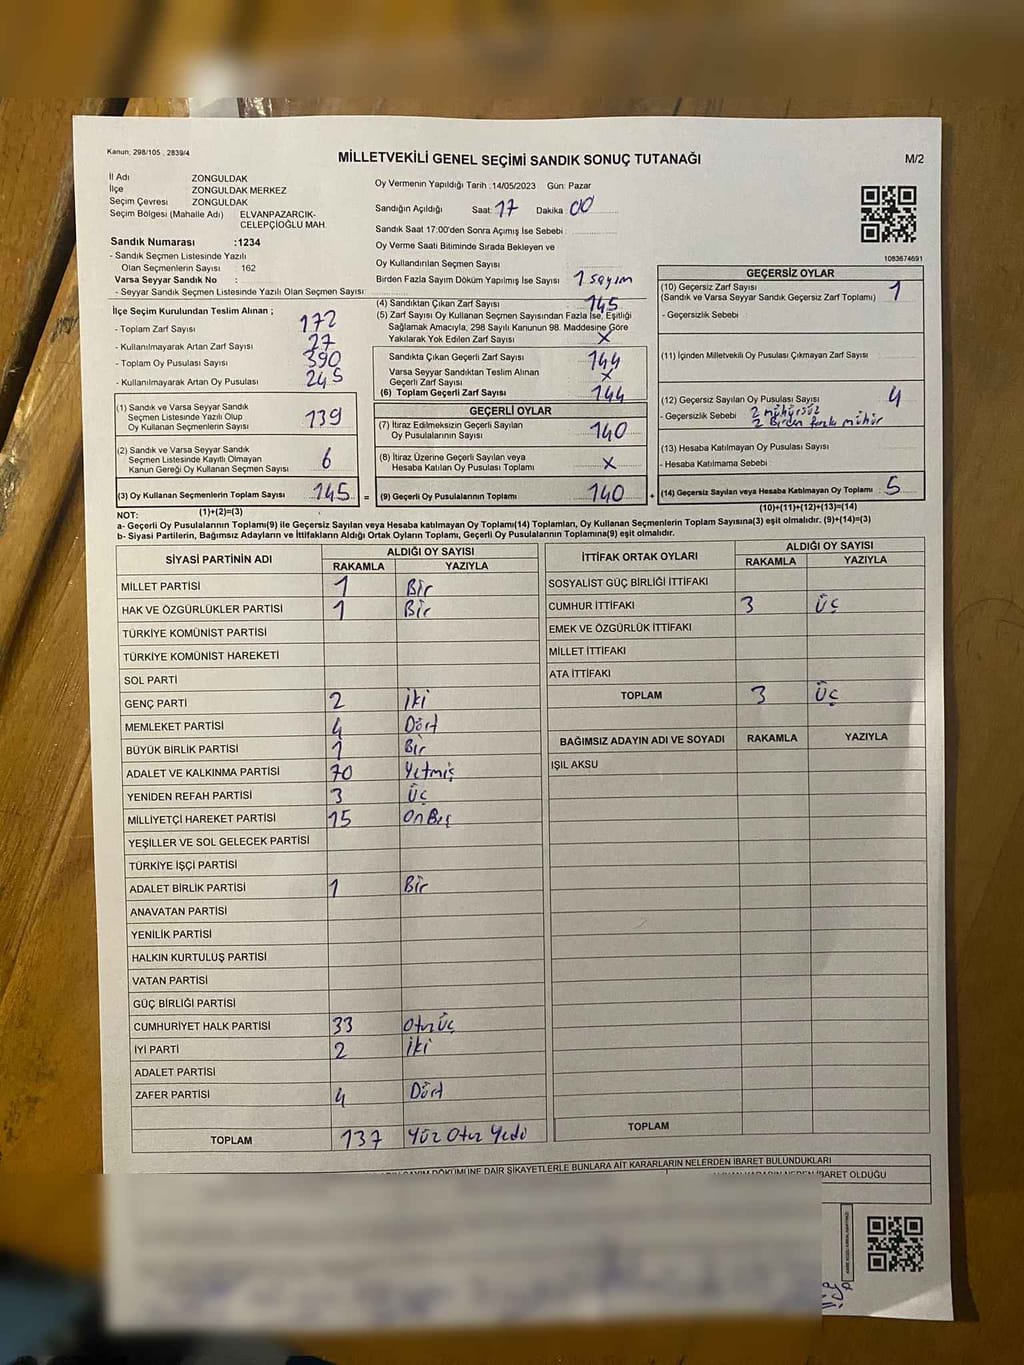 Kanun: 298/105 , 2839/4
MİLLETVEKİLİ GENEL SEÇİMİ SANDIK SONUÇ TUTANAĞI
M/2
İl Adı ZONGULDAK
İlçe ZONGULDAK MERKEZ
Seçim Çevresi ZONGULDAK
Seçim Bölgesi (Mahalle Adı) ELVANPAZARCIK-
CELEPÇİOĞLU MAH.
Sandık Numarası :1234
- Sandık Seçmen Listesinde Yazılı
Olan Seçmenlerin Sayısı : 162
Varsa Seyyar Sandık No :
- Seyyar Sandık Seçmen Listesinde Yazılı Olan Seçmen Sayısı:
Oy Vermenin Yapıldığı Tarih :14/05/2023 Gün: Pazar
Sandığın Açıldığı Saat: 17 Dakika: 00
Sandık Saat 17:00'den Sonra Açımış İse Sebebi :
Oy Verme Saati Bitiminde Sırada Bekleyen ve
Oy Kullandırılan Seçmen Sayısı
Birden Fazla Sayım Döküm Yapılmış İse Sayısı : 1 sayım
1083674691
İlçe Seçim Kurulundan Teslim Alınan ;
- Toplam Zarf Sayısı : 172
- Kullanılmayarak Artan Zarf Sayısı : 27
- Toplam Oy Pusulası Sayısı : 390
- Kullanılmayarak Artan Oy Pusulası : 245
(1) Sandık ve Varsa Seyyar Sandık
Seçmen Listesinde Yazılı Olup
Oy Kullanan Seçmenlerin Sayısı : 139
(2) Sandık ve Varsa Seyyar Sandık
Seçmen Listesinde Kayıtlı Olmayan
Kanun Gereği Oy Kullanan Seçmen Sayısı : 6
(3) Oy Kullanan Seçmenlerin Toplam Sayısı : 145 =
(1)+(2)=(3)
(4) Sandıktan Çıkan Zarf Sayısı : 145
(5) Zarf Sayısı Oy Kullanan Seçmen Sayısından Fazla İse, Eşitliği
Sağlamak Amacıyla, 298 Sayılı Kanunun 98. Maddesine Göre
Yakılarak Yok Edilen Zarf Sayısı : X
Sandıkta Çıkan Geçerli Zarf Sayısı : 144
Varsa Seyyar Sandıktan Teslim Alınan
Geçerli Zarf Sayısı : X
(6) Toplam Geçerli Zarf Sayısı : 144
GEÇERLİ OYLAR
(7) İtiraz Edilmeksizin Geçerli Sayılan
Oy Pusulalarının Sayısı : 140
(8) İtiraz Üzerine Geçerli Sayılan veya
Hesaba Katılan Oy Pusulası Toplamı : X
(9) Geçerli Oy Pusulalarının Toplamı : 140 +
GEÇERSİZ OYLAR
(10) Geçersiz Zarf Sayısı
(Sandık ve Varsa Seyyar Sandık Geçersiz Zarf Toplamı) : 1
- Geçersizlik Sebebi :
(11) İçinden Milletvekili Oy Pusulası Çıkmayan Zarf Sayısı :
(12) Geçersiz Sayılan Oy Pusulası Sayısı : 4
- Geçersizlik Sebebi : 2 mühürsüz
2 Birden fazla mühür
(13) Hesaba Katılmayan Oy Pusulası Sayısı :
- Hesaba Katılmama Sebebi :
(14) Geçersiz Sayılan veya Hesaba Katılmayan Oy Toplamı : 5
(10)+(11)+(12)+(13)=(14)
NOT:
a- Geçerli Oy Pusulalarının Toplamı(9) ile Geçersiz Sayılan veya Hesaba katılmayan Oy Toplamı(14) Toplamları, Oy Kullanan Seçmenlerin Toplam Sayısına(3) eşit olmalıdır. (9)+(14)=(3)
b- Siyasi Partilerin, Bağımsız Adayların ve İttifakların Aldığı Ortak Oyların Toplamı, Geçerli Oy Pusulalarının Toplamına(9) eşit olmalıdır.
SİYASİ PARTİNİN ADI ALDIĞI OY SAYISI
RAKAMLA YAZIYLA
MİLLET PARTİSİ 1 Bir
HAK VE ÖZGÜRLÜKLER PARTİSİ 1 Bir
TÜRKİYE KOMÜNİST PARTİSİ
TÜRKİYE KOMÜNİST HAREKETİ
SOL PARTİ
GENÇ PARTİ 2 İki
MEMLEKET PARTİSİ 4 Dört
BÜYÜK BİRLİK PARTİSİ 1 Bir
ADALET VE KALKINMA PARTİSİ 70 Yetmiş
YENİDEN REFAH PARTİSİ 3 Üç
MİLLİYETÇİ HAREKET PARTİSİ 15 OnBeş
YEŞİLLER VE SOL GELECEK PARTİSİ
TÜRKİYE İŞÇİ PARTİSİ
ADALET BİRLİK PARTİSİ 1 Bir
ANAVATAN PARTİSİ
YENİLİK PARTİSİ
HALKIN KURTULUŞ PARTİSİ
VATAN PARTİSİ
GÜÇ BİRLİĞİ PARTİSİ
CUMHURİYET HALK PARTİSİ 33 Otuz Üç
İYİ PARTİ 2 İki
ADALET PARTİSİ
ZAFER PARTİSİ 4 Dört
TOPLAM 137 Yüz Otuz Yedi
İTTİFAK ORTAK OYLARI ALDIĞI OY SAYISI
RAKAMLA YAZIYLA
SOSYALİST GÜÇ BİRLİĞİ İTTİFAKI
CUMHUR İTTİFAKI 3 Üç
EMEK VE ÖZGÜRLÜK İTTİFAKI
MİLLET İTTİFAKI
ATA İTTİFAKI
TOPLAM 3 Üç
BAĞIMSIZ ADAYIN ADI VE SOYADI RAKAMLA YAZIYLA
IŞIL AKSU
TOPLAM
SAYIM DÖKÜMÜNE DAİR ŞİKAYETLERLE BUNLARA AİT KARARLARIN NELERDEN İBARET BULUNDUKLARI
KARARIN NEDEN İBARET OLDUĞU